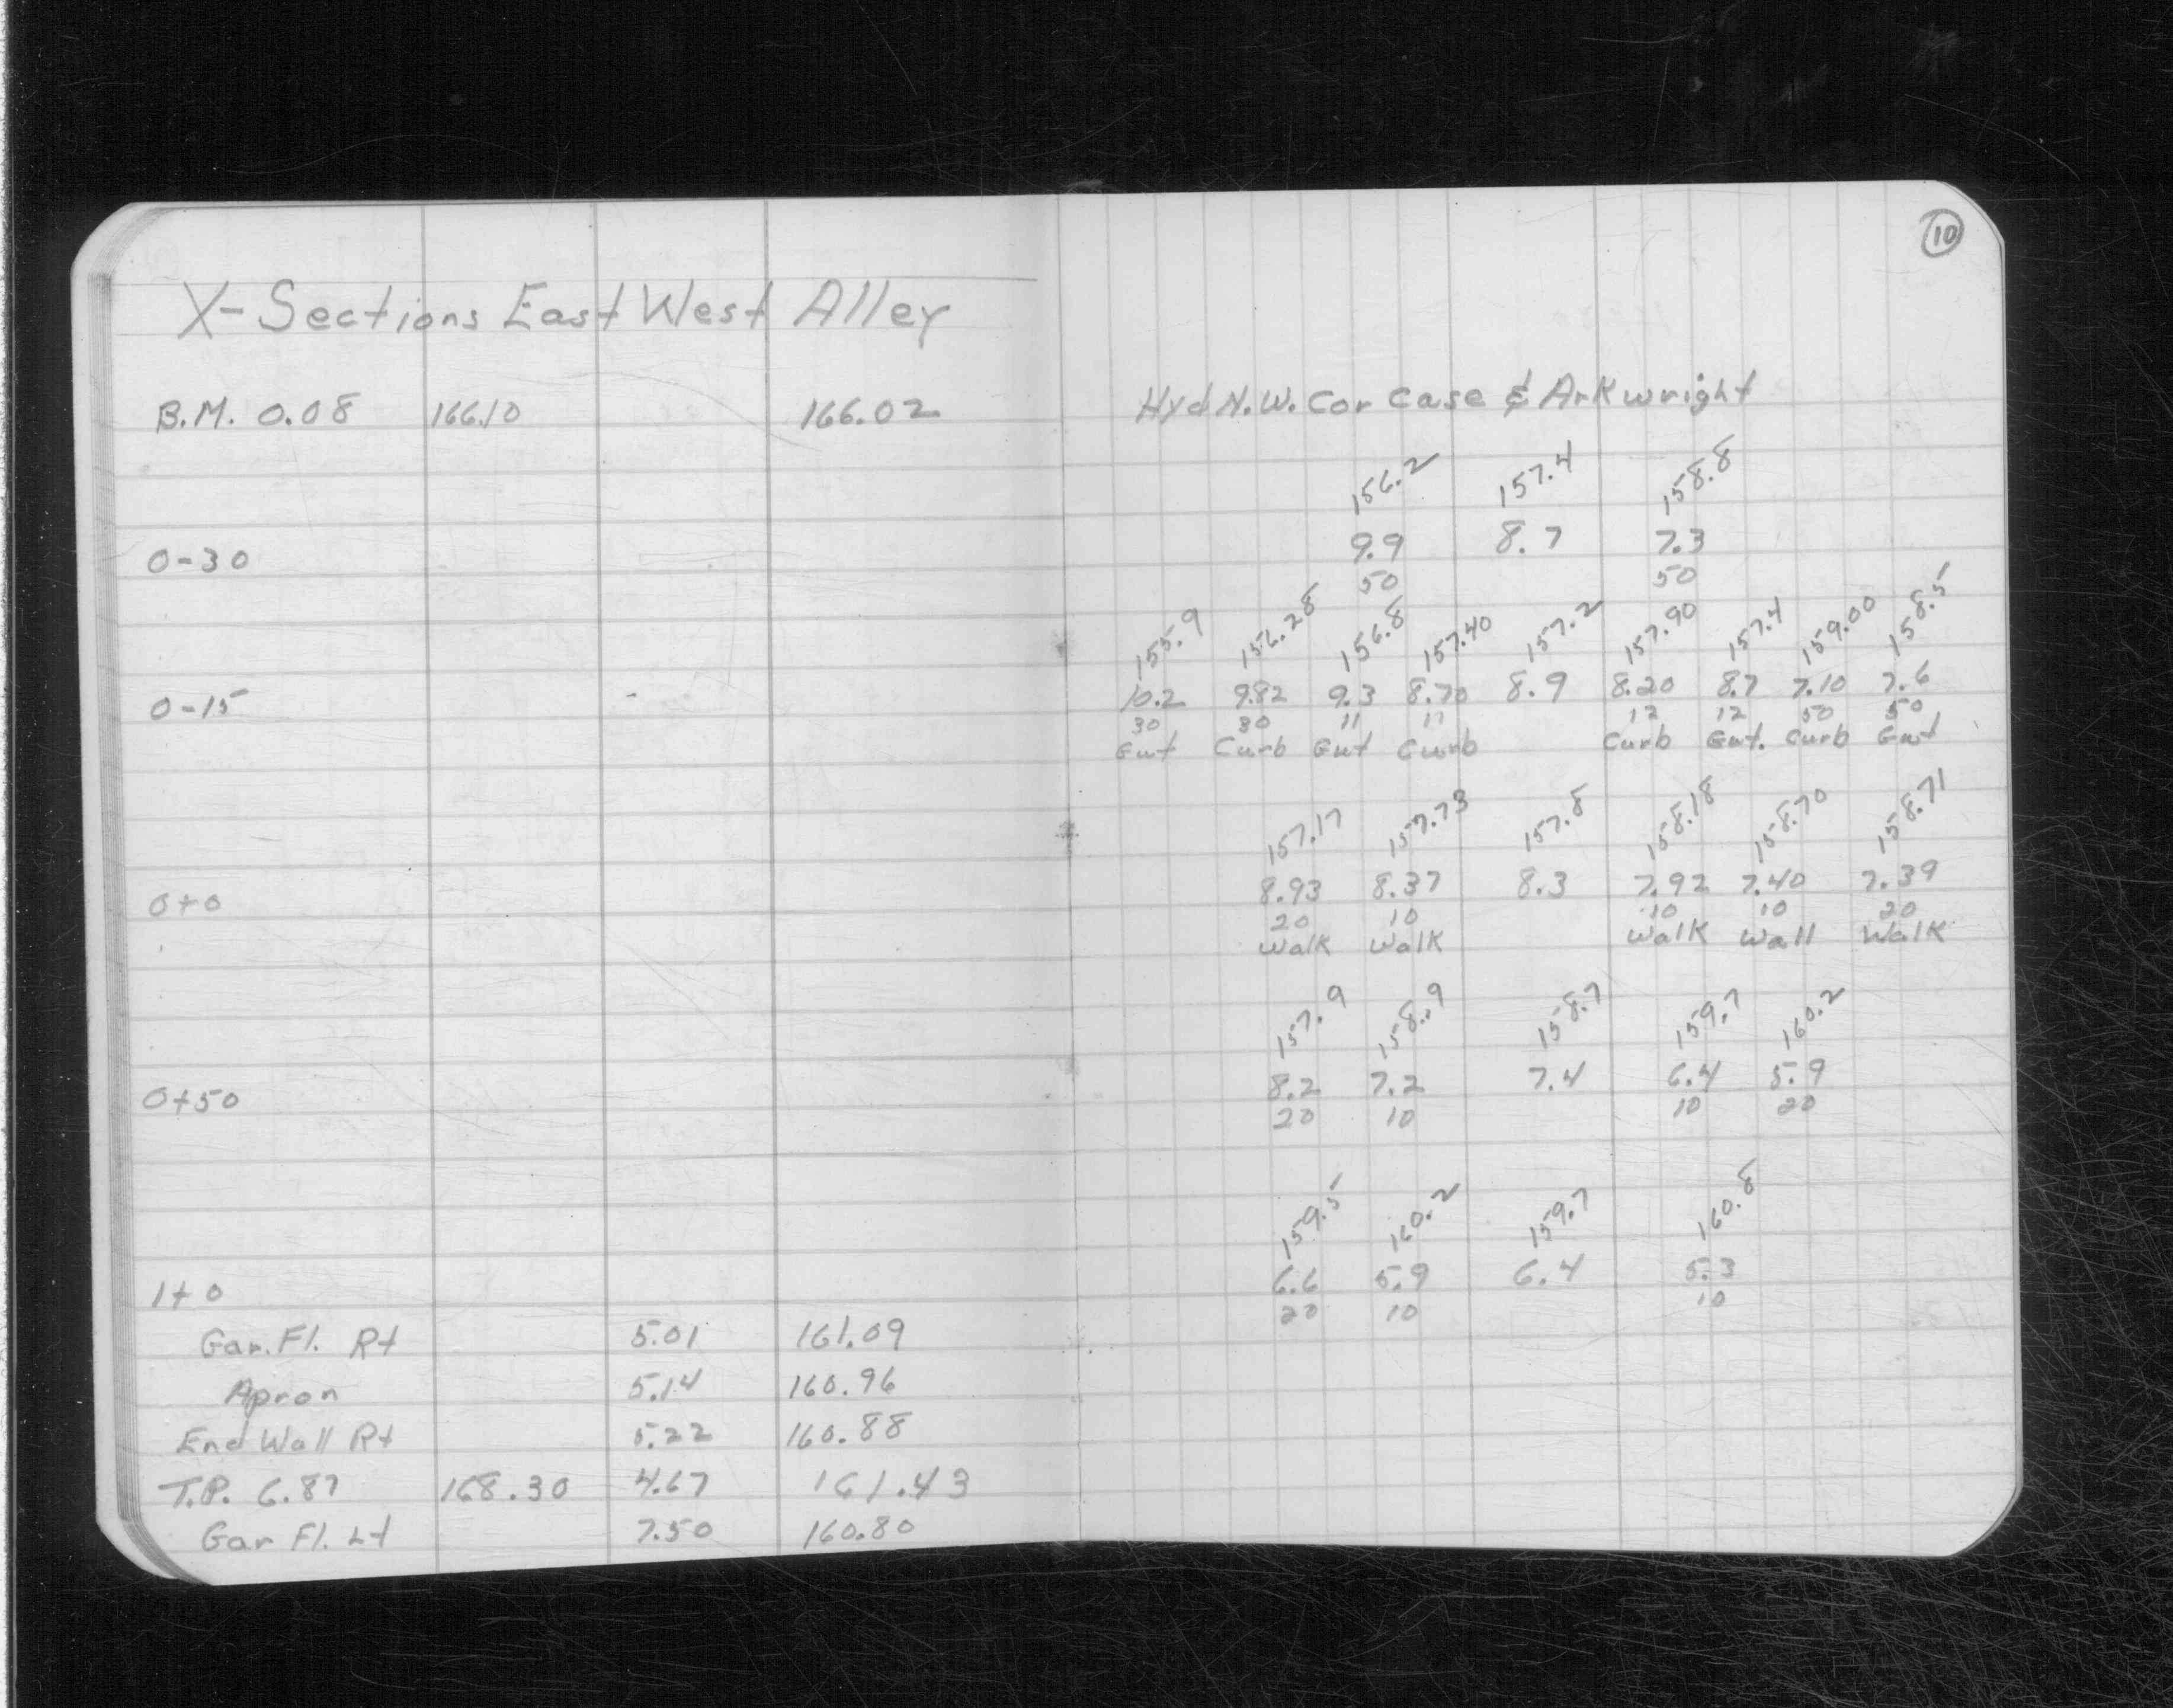 10
X-Sections East West Alley
B.M. 0.08 166.10 166.02 Hyd N.W. Cor Case & Arkwright
156.2 157.4 158.8
0-30 9.9 8.7 7.3
50 50
155.9 156.28 156.8 157.40 157.2 157.90 157.4 159.00 158.5
0-15 10.2 9.82 9.3 8.70 8.9 8.20 8.7 7.10 7.6
30 30 11 11 12 12 50 50
Gut Curb Gut Curb Curb Gut. Curb Gut
157.17 157.73 157.8 158.18 158.70 158.71
0+0 8.93 8.37 8.3 7.92 7.40 7.39
20 10 10 10 20
Walk Walk Walk Wall Walk
157.9 158.9 158.7 159.7 160.2
0+50 8.2 7.2 7.4 6.4 5.9
20 10 10 20
159.5 160.2 159.7 160.8
1+0 6.6 5.9 6.4 5.3
20 10 10
Gar. Fl. Rt 5.01 161.09
Apron 5.14 160.96
End Wall Rt 5.22 160.88
T.P. 6.87 168.30 4.67 161.43
Gar Fl. Lt 7.50 160.80